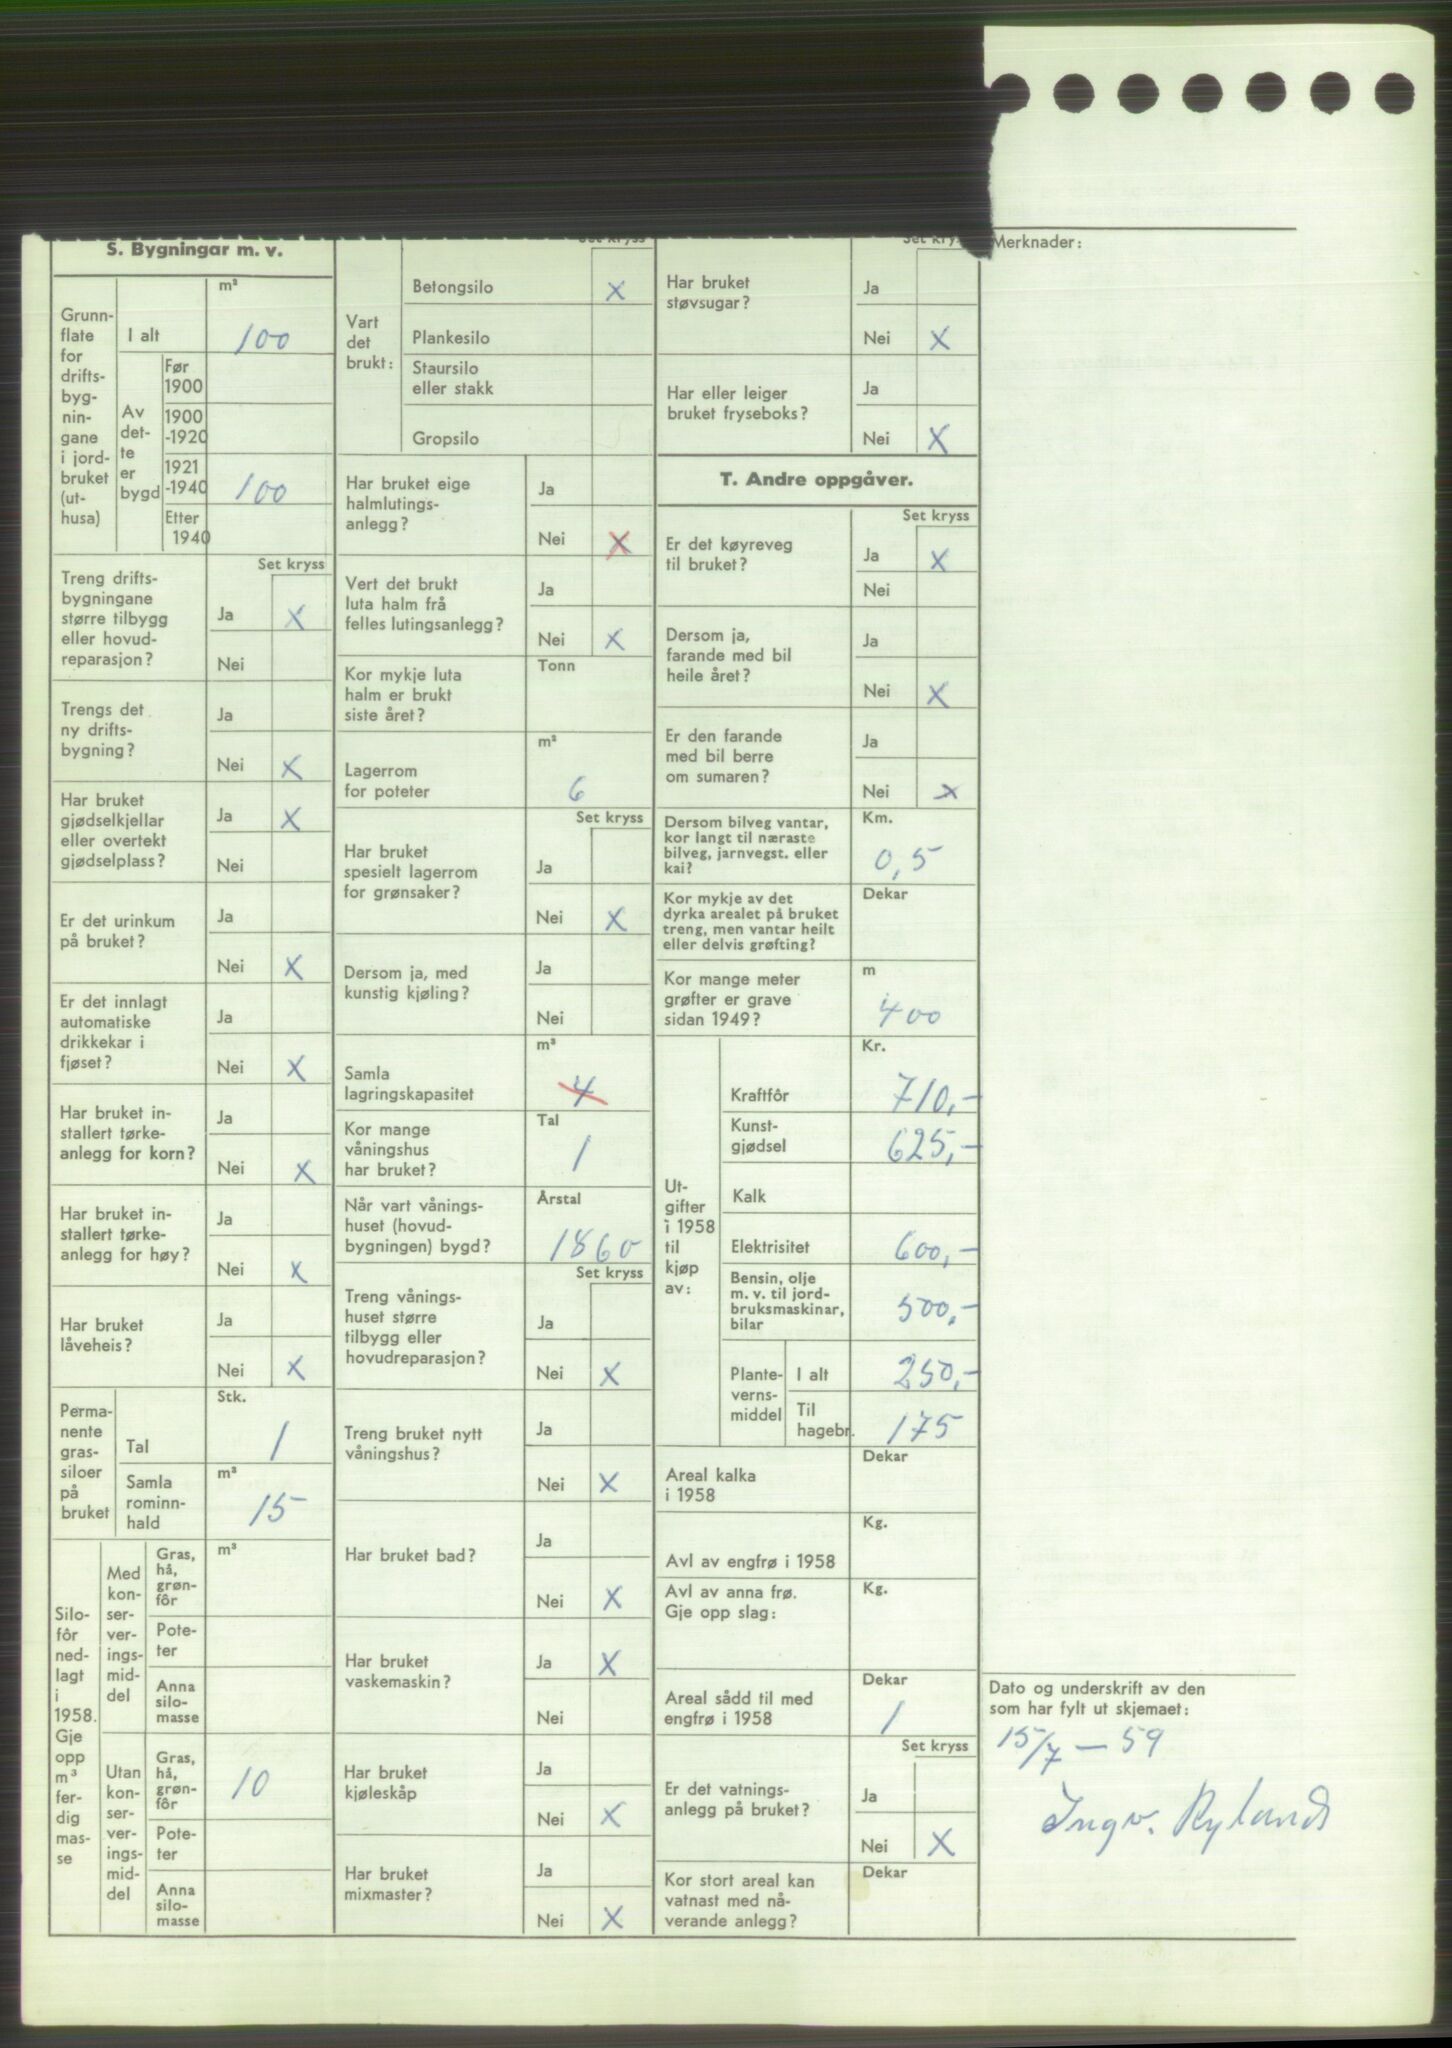 S. Bygningar m. v.
Grunn-
flate
for
drifts-
byg-
nin-
gane
i jord-
bruket
(ut-
husa)
I alt
m²
100
Av
det-
te
er
bygd
Før
1900
1900
-1920
1921
-1940
100
Etter
1940
Set kryss
Treng drifts-
bygningane
større tilbygg
eller hovud-
reparasjon?
Ja X
Nei
Trengs det
ny drifts-
bygning?
Ja
Nei X
Har bruket
gjødselkjellar
eller overtekt
gjødselplass?
Ja X
Nei
Er det urinkum
på bruket?
Ja
Nei X
Er det innlagt
automatiske
drikkekar i
fjøset?
Ja
Nei X
Har bruket in-
stallert tørke-
anlegg for korn?
Ja
Nei X
Har bruket in-
stallert tørke-
anlegg for høy?
Ja
Nei X
Har bruket
låveheis?
Ja
Nei X
Perma-
nente
gras-
siloer
på
bruket
Stk.
Tal
1
Samla
rominn-
hald
m³
15
Silo-
fôr
ned-
lagt
i
1958.
Gje
opp
m³
fer-
dig
mas-
se
Med
kon-
ser-
ver-
ings-
mid-
del
Gras,
hå,
grøn-
fôr
m³
Pote-
ter
Anna
silo-
masse
Utan
kon-
ser-
ver-
ings-
mid-
del
Gras,
hå,
grøn-
fôr
10
Pote-
ter
Anna
silo-
masse
Set kryss
Vart
det
brukt:
Betongsilo X
Plankesilo
Staursilo
eller stakk
Gropsilo
Har bruket eige
halmlutings-
anlegg?
Ja
Nei X
Vert det brukt
luta halm frå
felles lutingsanlegg?
Ja
Nei X
Kor mykje luta
halm er brukt
siste året?
Tonn
Lagerrom
for poteter
m²
6
Set kryss
Har bruket
spesielt lagerrom
for grønsaker?
Ja
Nei X
Dersom ja, med
kunstig kjøling?
Ja
Nei
Samla
lagringskapasitet
m³
4
Kor mange
våningshus
har bruket?
Tal
1
Når vart vånings-
huset (hovud-
bygningen) bygd?
Årstal
1860
Set kryss
Treng vånings-
huset større
tilbygg eller
hovudreparasjon?
Ja
Nei X
Treng bruket nytt
våningshus?
Ja
Nei X
Har bruket bad?
Ja
Nei X
Har bruket
vaskemaskin?
Ja X
Nei
Har bruket
kjøleskåp
Ja
Nei X
Har bruket
mixmaster?
Ja
Nei X
Set kryss
Har bruket
støvsugar?
Ja
Nei X
Har eller leiger
bruket fryseboks?
Ja
Nei X
T. Andre oppgåver.
Set kryss
Er det køyreveg
til bruket?
Ja X
Nei
Dersom ja,
farande med bil
heile året?
Ja
Nei X
Er den farande
med bil berre
om sumaren?
Ja
Nei X
Dersom bilveg vantar,
kor langt til næraste
bilveg, jarnvegst. eller
kai?
Km.
0,5
Kor mykje av det
dyrka arealet på bruket
treng, men vantar heilt
eller delvis grøfting?
Dekar
Kor mange meter
grøfter er grave
sidan 1949?
m
400
Ut-
gifter
i 1958
til
kjøp
av:
Kr.
Kraftfôr
710,-
Kunst-
gjødsel
625,-
Kalk
Elektrisitet
600,-
Bensin, olje
m. v. til jord-
bruksmaskinar,
bilar
500,-
Plante-
verns-
middel
I alt
250,-
Til
hagebr.
175
Areal kalka
i 1958
Dekar
Avl av engfrø i 1958
Kg.
Avl av anna frø.
Gje opp slag:
Kg.
Areal sådd til med
engfrø i 1958
Dekar
1
Set kryss
Er det vatnings-
anlegg på bruket?
Ja
Nei X
Kor stort areal kan
vatnast med nå-
verande anlegg?
Dekar
Merknader:
Dato og underskrift av den
som har fylt ut skjemaet:
15/7 — 59
Ingv. Rylands